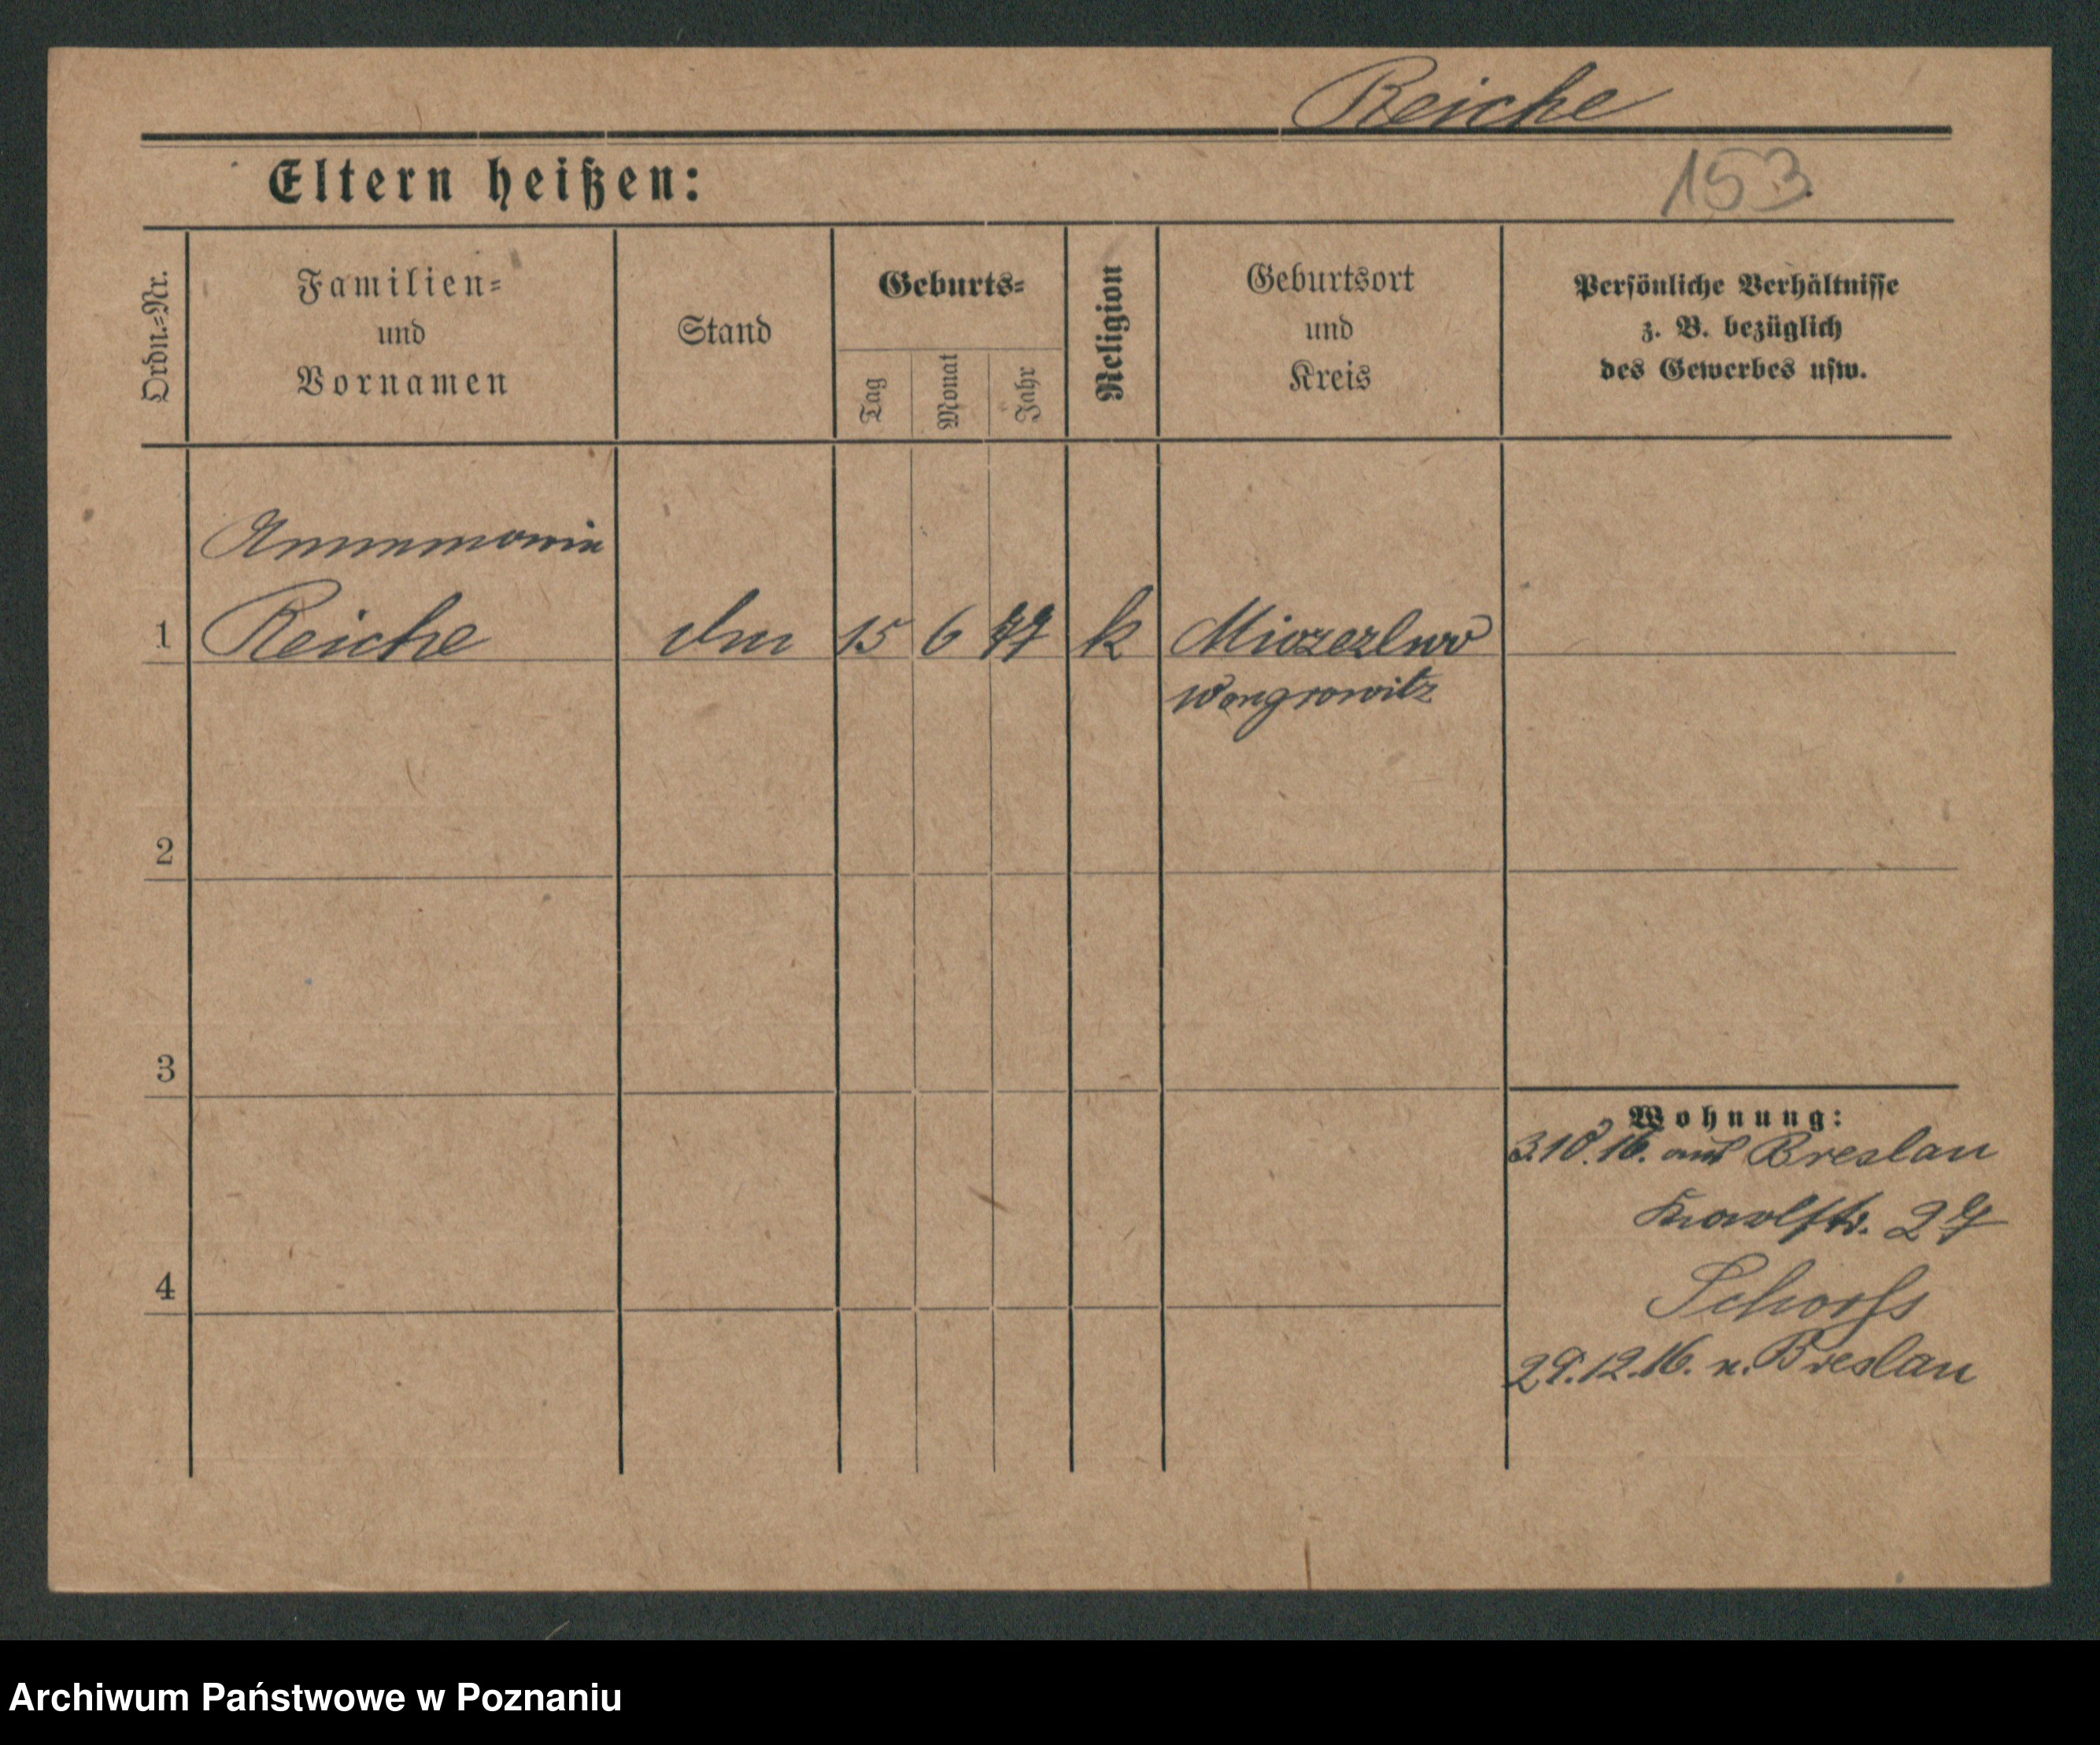 Reiche
Eltern heißen:
153
Ordn.-Nr.
Familien-
und
Vornamen
Stand
Geburts-
Tag
Monat
Jahr
Religion
Geburtsort
und
Kreis
Persönliche Verhältnisse
z. B. bezüglich
des Gewerbes usw.
Annemarie
1 Reiche 15 6 k
Wongrowitz
2
3
4
Wohnung:
3.10.16. aus Breslau
29.12.16. n. Breslau
Archiwum Państwowe w Poznaniu